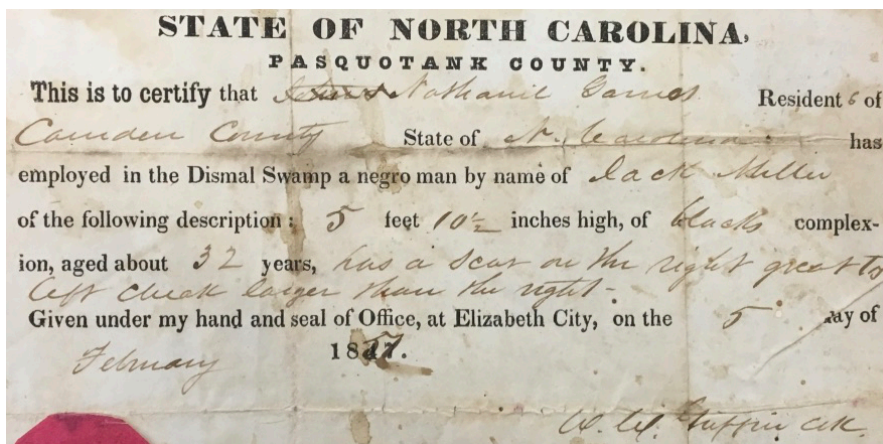 STATE OF NORTH CAROLINA,
PASQUOTANK COUNTY.
This is to certify that Nathaniel James Resident of
Camden County State of N. Carolina has
employed in the Dismal Swamp a negro man by name of Jack Miller
of the following description : 5 feet 10½ inches high, of black complex-
ion, aged about 32 years, has a scar on the right great to
left cheek larger than the right -
Given under my hand and seal of Office, at Elizabeth City, on the 5 day of
February 18